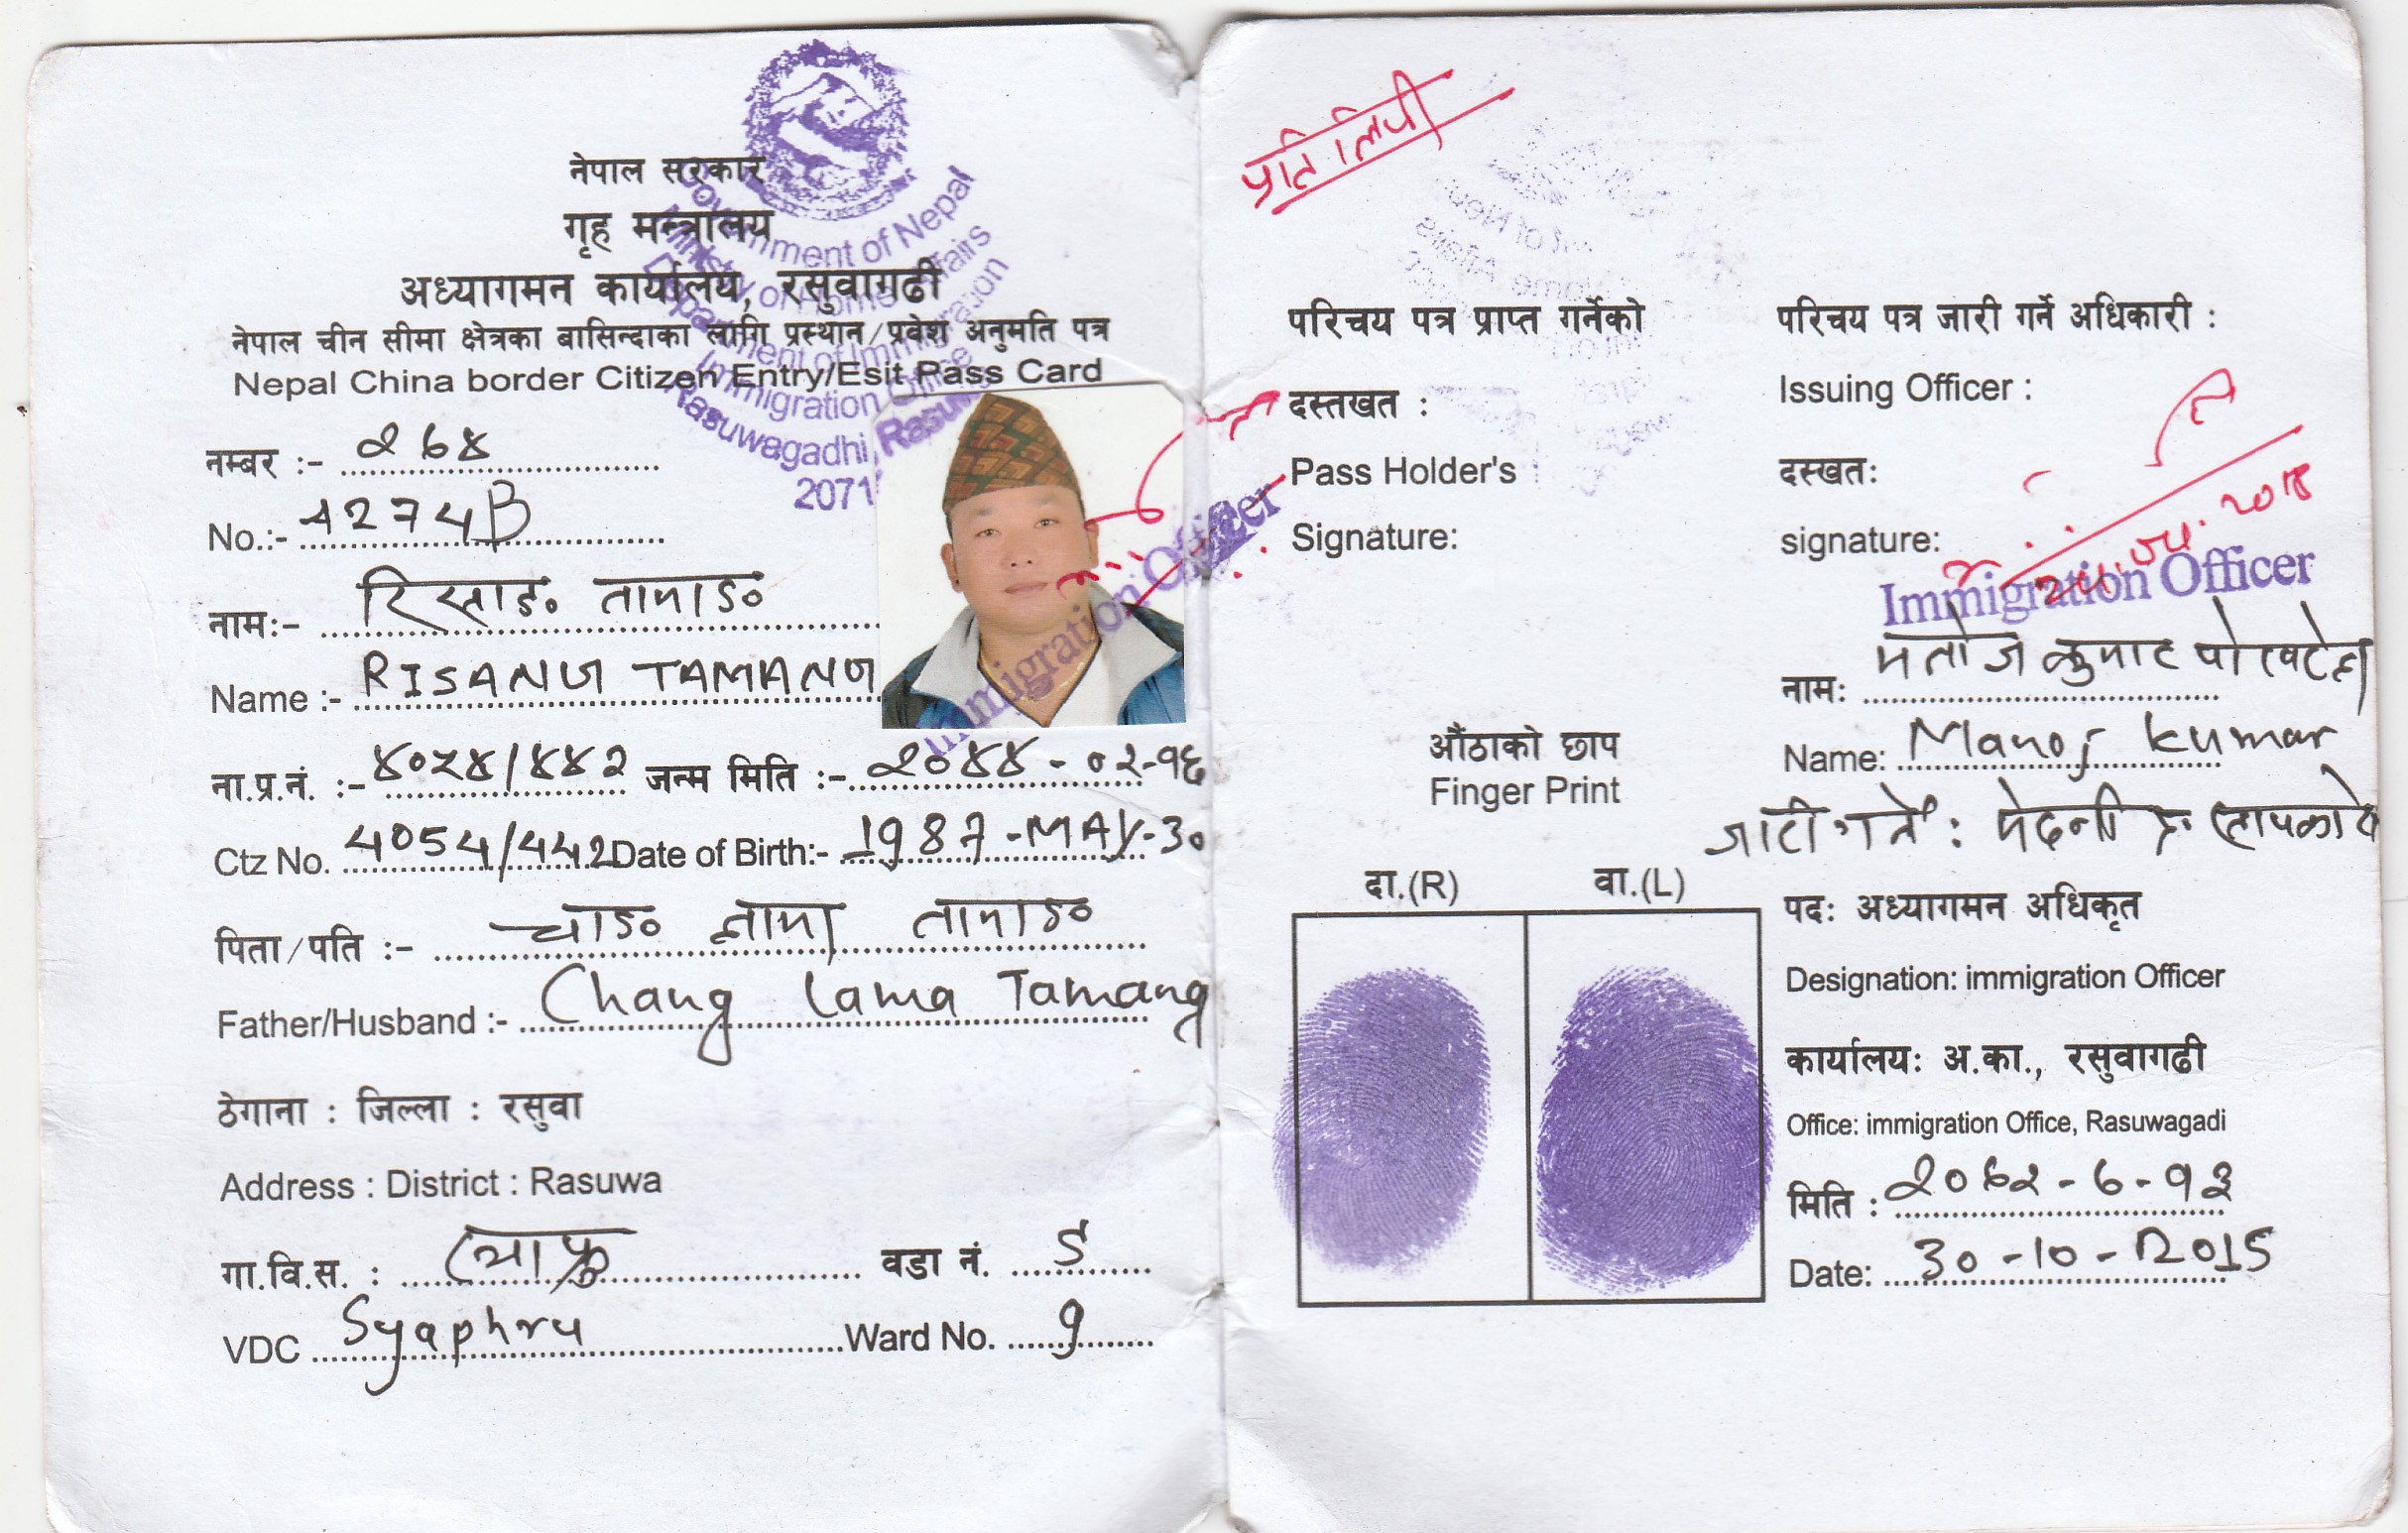 नेपाल सरकार
गृह मन्त्रालय
अध्यागमन कार्यालय, रसुवागढी
नेपाल चीन सीमा क्षेत्रका बासिन्दाका लागि प्रस्थान/प्रवेश अनुमति पत्र
Nepal China border Citizen Entry/Esit Pass Card
Government of Nepal
Ministry of Home Affairs
Department of Immigration
Immigration Office
Rasuwagadhi, Rasuwa
2071
नम्बर :-
No.:- 4274B
नाम:- तामाङ
Name :- RISANG TAMANG
Immigration Officer
ना.प्र.नं. :- ४०५४/४४२ जन्म मिति :- २०४४-०२-१६
Ctz No. 4054/442 Date of Birth:- 1987-MAY-30
पिता/पति :- चाङ लामा तामाङ
Father/Husband :- Chang Lama Tamang
ठेगाना : जिल्ला : रसुवा
Address : District : Rasuwa
गा.वि.स. : स्याफ्रु वडा नं.
VDC Syaphru Ward No. 9
प्रतिलिपी
परिचय पत्र प्राप्त गर्नेको
दस्तखत :
Pass Holder's
Signature:
औंठाको छाप
Finger Print
दा.(R) वा.(L)
परिचय पत्र जारी गर्ने अधिकारी :
Issuing Officer :
दस्खत:
signature:
Immigration Officer
नाम: मनोज कुमार पोखरेल
Name: Manoj Kumar
जारी गर्ने :
पद: अध्यागमन अधिकृत
Designation: immigration Officer
कार्यालय: अ.का., रसुवागढी
Office: immigration Office, Rasuwagadi
मिति : २०७२-७-१३
Date: 30-10-2015